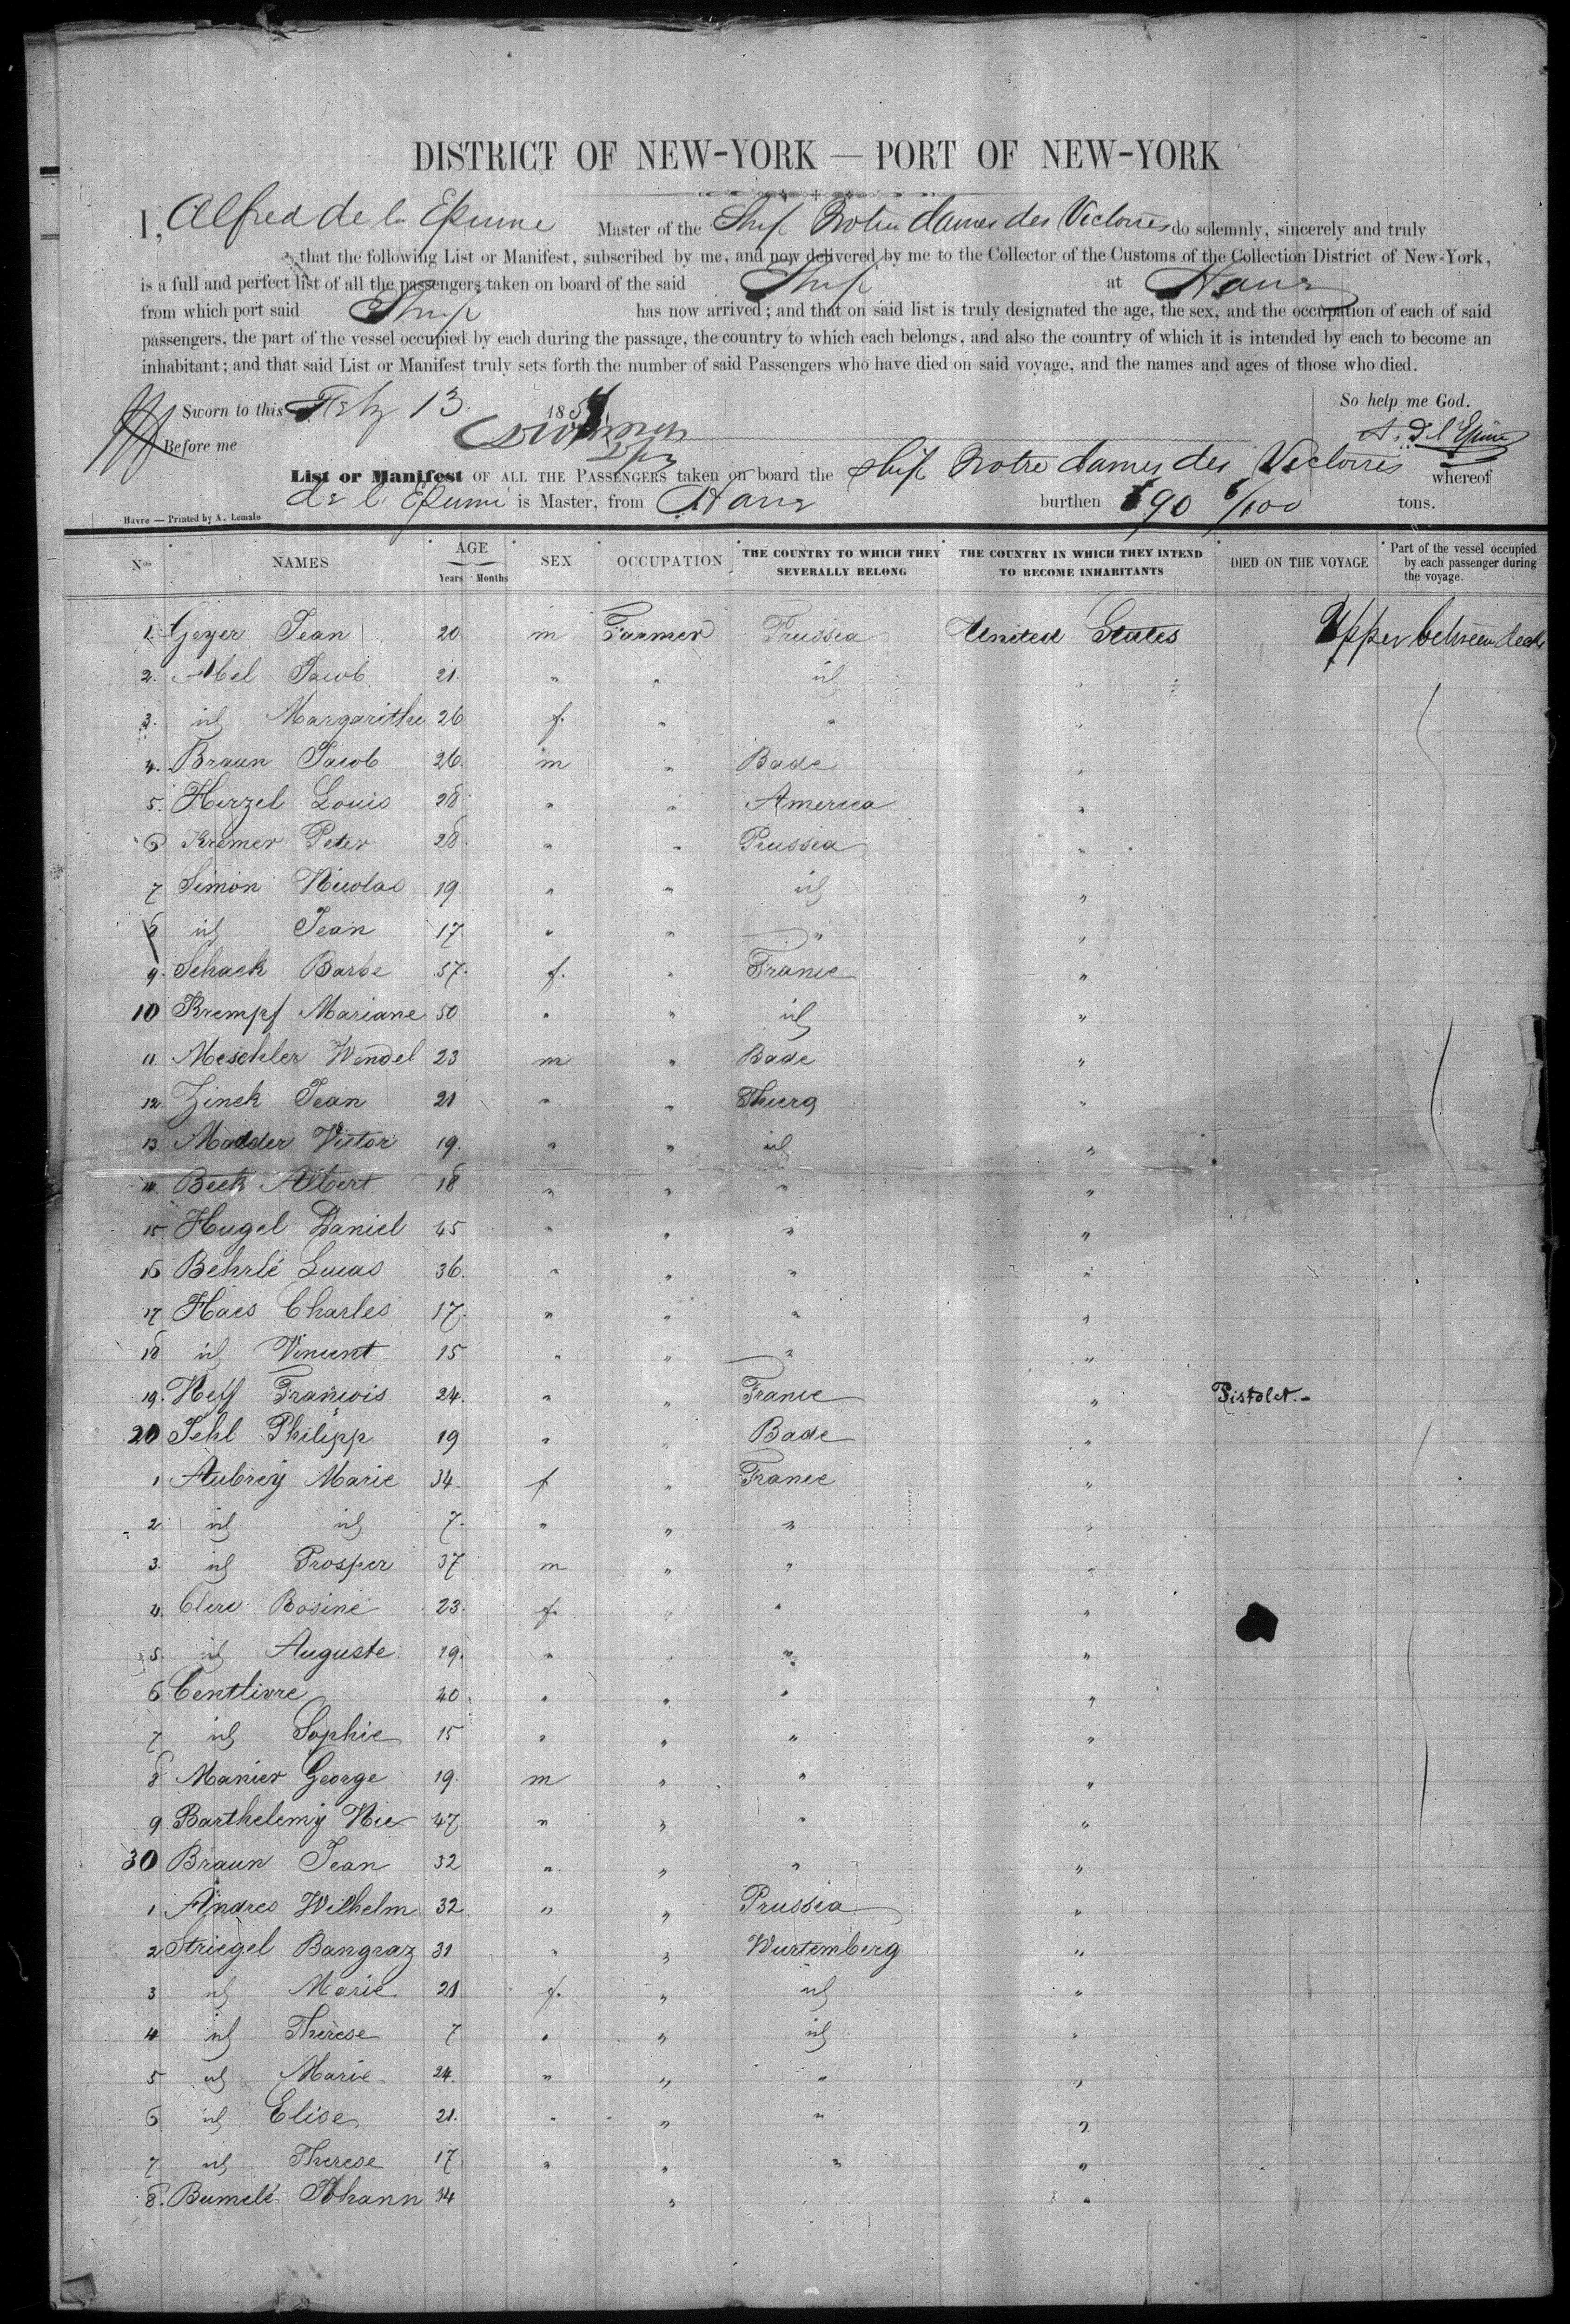 DISTRICT OF NEW-YORK — PORT OF NEW-YORK
I, Alfred de la Epine Master of the Ship Notre dames des Victoires do solemnly, sincerely and truly
that the following List or Manifest, subscribed by me, and now delivered by me to the Collector of the Customs of the Collection District of New-York,
is a full and perfect list of all the passengers taken on board of the said Ship at Havre
from which port said Ship has now arrived; and that on said list is truly designated the age, the sex, and the occupation of each of said
passengers, the part of the vessel occupied by each during the passage, the country to which each belongs, and also the country of which it is intended by each to become an
inhabitant; and that said List or Manifest truly sets forth the number of said Passengers who have died on said voyage, and the names and ages of those who died.
Sworn to this Feby 13. 185 So help me God.
Before me A. D l'Epine
List or Manifest OF ALL THE PASSENGERS taken on board the ship Notre dames des Victoires whereof
de l' Epine is Master, from Havre burthen 690 6/100 tons.
Havre — Printed by A. Lemale
Nos NAMES AGE Years Months SEX OCCUPATION THE COUNTRY TO WHICH THEY SEVERALLY BELONG THE COUNTRY IN WHICH THEY INTEND TO BECOME INHABITANTS DIED ON THE VOYAGE Part of the vessel occupied by each passenger during the voyage.
1. Geyer Jean 20 m Farmer Prussia United States Upper between deck
2. Abel Jacob 21. " " id "
3. id Margarithe 26 f. " " "
4. Braun Jacob 26. m " Bade "
5. Hirzel Louis 28 " " America "
6 Kremer Peter 28. " " Prussia "
7 Simon Nicolas 19 " " id "
8 id Jean 17. " " " "
9. Schack Barbe 57. f. " France "
10 Krempf Mariane 50 " " id "
11. Meschler Wendel 23 m " Bade "
12 Zinck Jean 21 " " Thurg "
13 Madder Victor 19. " " id "
14. Beck Albert 18 " " " "
15 Hugel Daniel 45 " " " "
16 Behrlé Lucas 36. " " " "
17 Haes Charles 17. " " " "
18 id Vincent 15 " " " "
19. Neff François 24. " " France " Pistolet.-
20 Jehl Philipp 19 " " Bade "
1 Aubrey Marie 34. f " France "
2 id id 7. " " " "
3. id Prosper 37 m " " "
4. Clerc Rosine 23. f. " " "
5. id Auguste 19. " " " "
6 Centlivre 40. " " " "
7 id Sophie 15 " " " "
8 Manier George 19. m " " "
9 Barthelemy Nic 47 " " " "
30 Braun Jean 32 " " " "
1 Andres Wilhelm 32 " " Prussia "
2 Striegel Bangraz 31 " " Wurtemberg "
3 id Marie 21 f. " id "
4 id Therese 7 " " id "
5 id Marie 24. " " " "
6 id Elise 21. " " " "
7 id Therese 17. " " " "
8. Bumelé Johann 34 " "